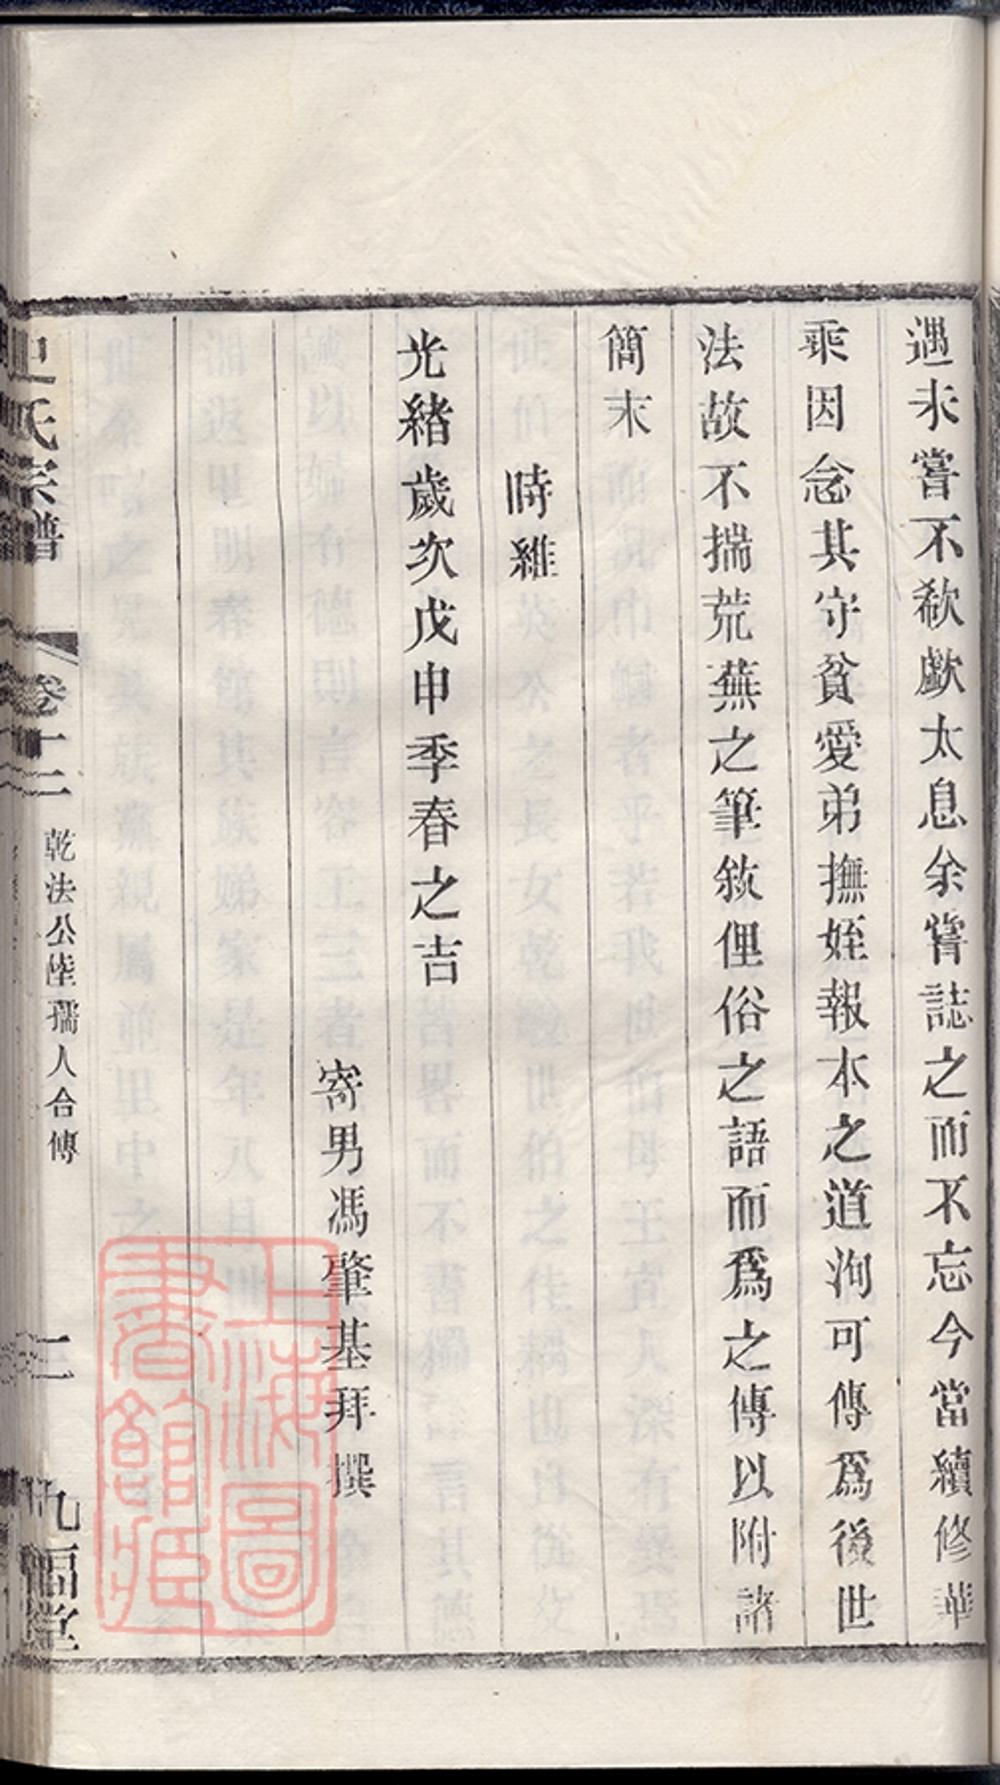 遇未嘗不欷歔太息余嘗誌之而不忘今當續修華
乘因念其守貧愛弟撫姪報本之道洵可傳爲後世
法故不揣荒蕪之筆敘俚俗之語而爲之傳以附諸
簡末
時維
光緒歲次戊申季春之吉
寄男馮肇基拜撰
氏宗譜
卷十二
乾法公陸孺人合傳
二
九福堂
上海圖書館藏